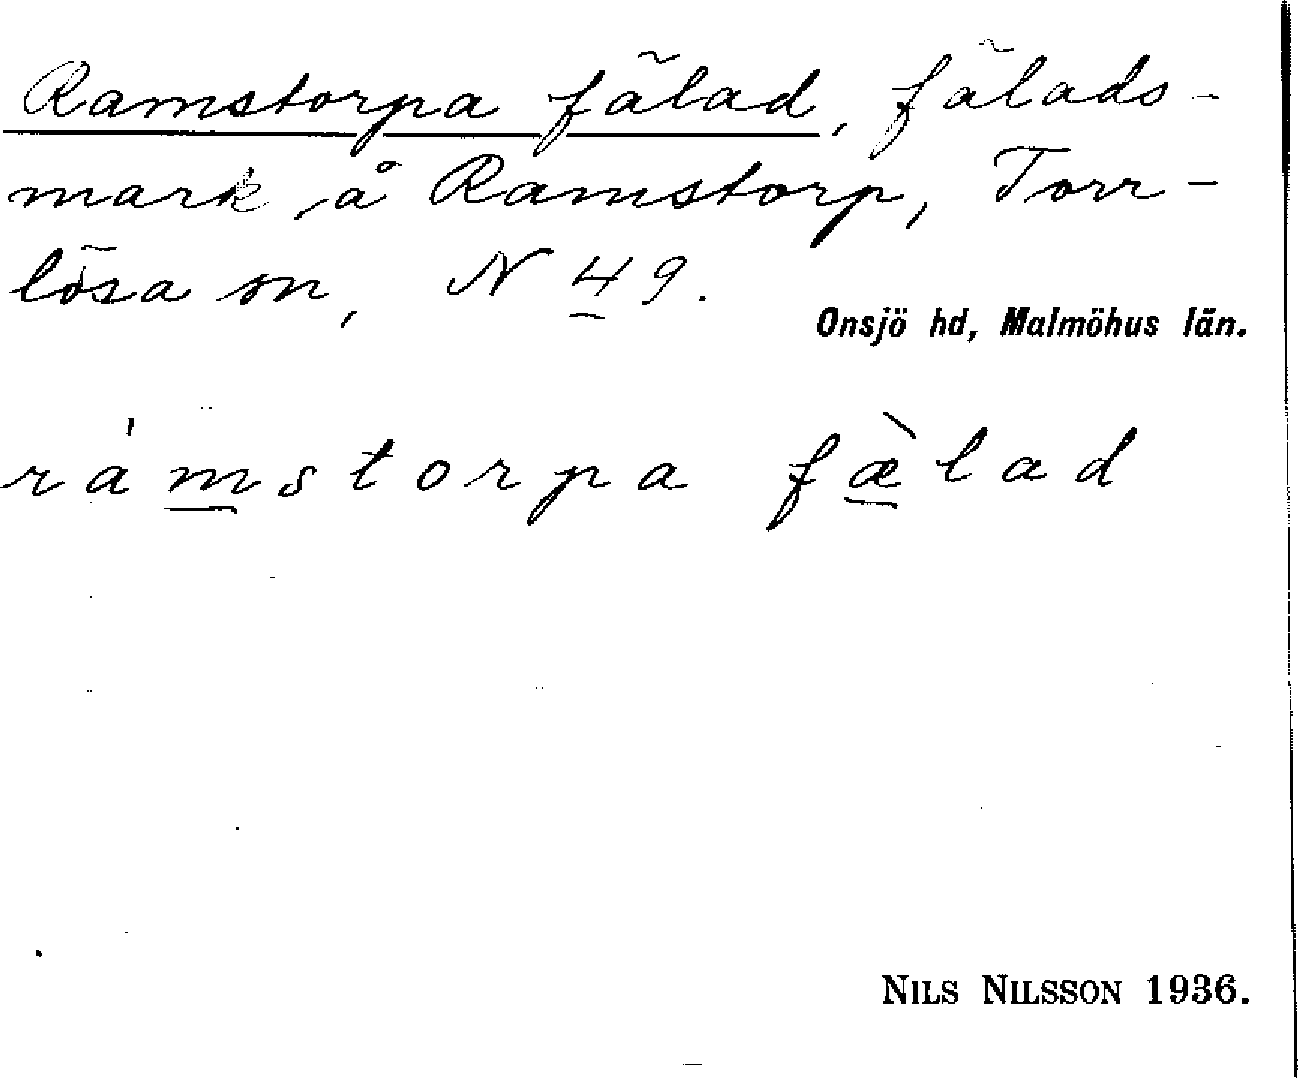 Ramstorpa fälad, fälads-
mark å Ramstorp, Torr-
lösa sn, N 49.
Onsjö hd, Malmöhus län.
rámstorpa fæ̀lad
NILS NILSSON 1936.